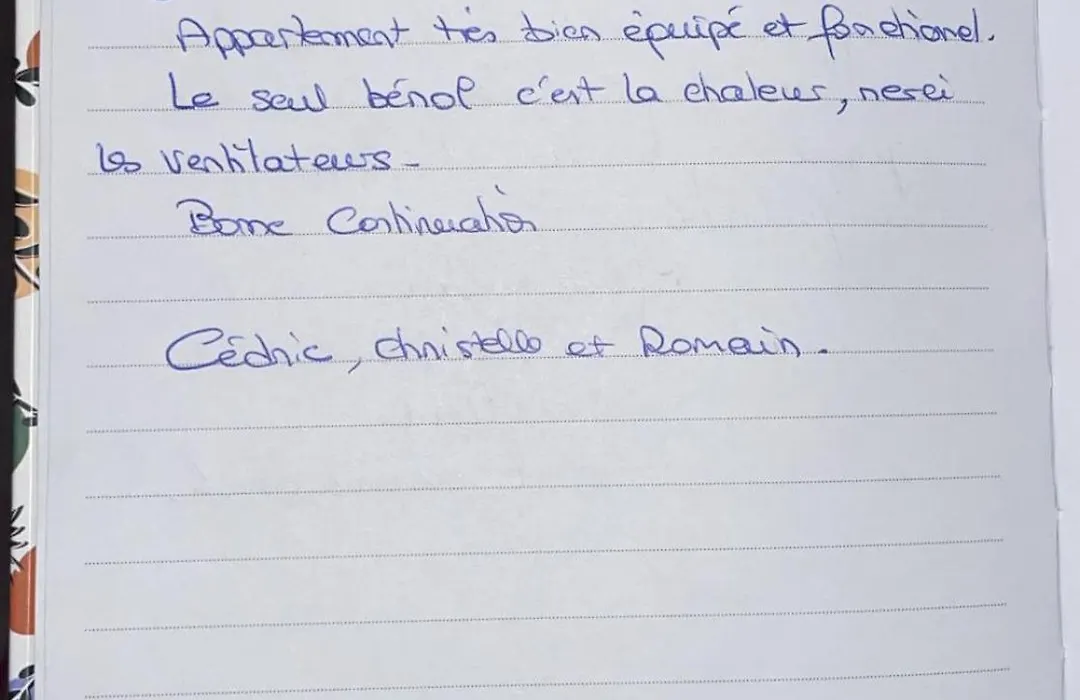 Appartement très bien équipé et fonctionel.
Le seul bémol c'est la chaleur, merci
les ventilateurs -
Bonne Continuation
Cédric, Christelle et Romain.